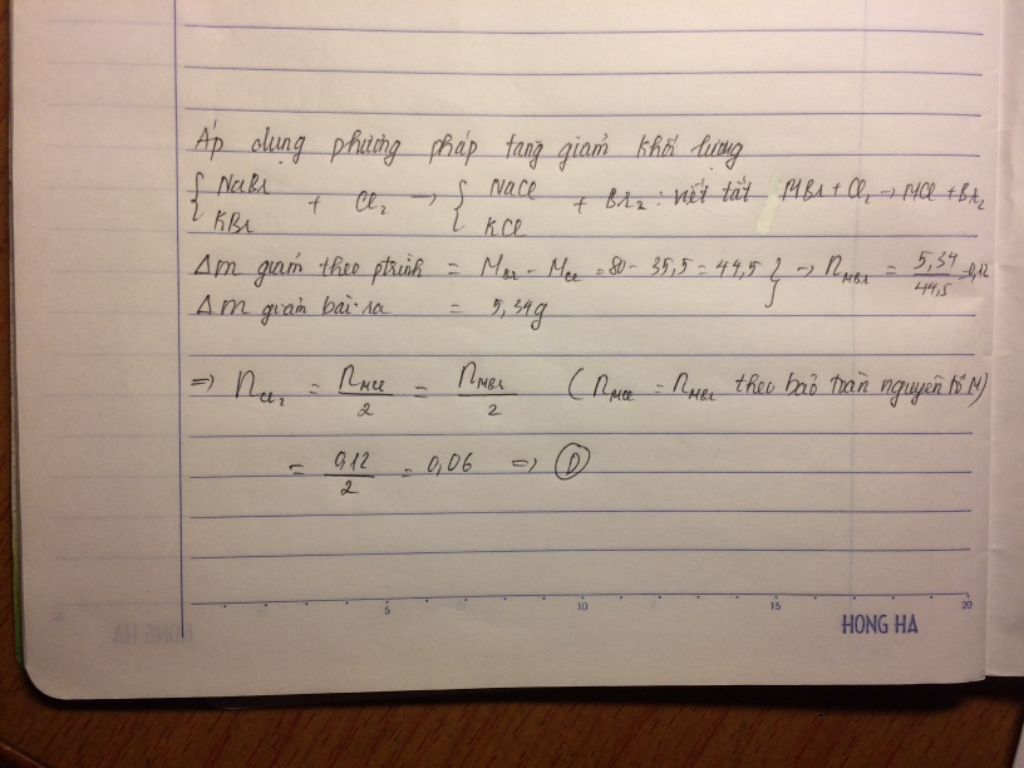 Áp dụng phương pháp tăng giảm khối lượng
{ NaBr KBr + Cl₂ → { NaCl KCl + Br₂ : viết tắt MBr + Cl₂ → MCl + Br₂
Δm giảm theo ptrình = M_Br - M_Cl = 80 - 35,5 = 44,5 } → n_MBr = 5,34/44,5 = 0,12
Δm giảm bài ra = 5,34g
=> n_Cl₂ = n_MCl/2 = n_MBr/2 (n_MCl = n_MBr theo bảo toàn nguyên tố M)
= 0,12/2 = 0,06 => D
5 10 15 20
HONG HA